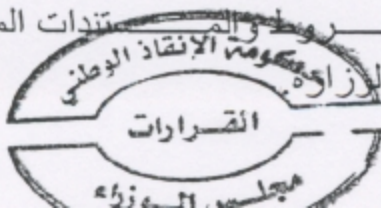 ـروط والمـستندات الم
لوزارة.
حكومة الإنقاذ الوطني
القرارات
مجلس الوزراء